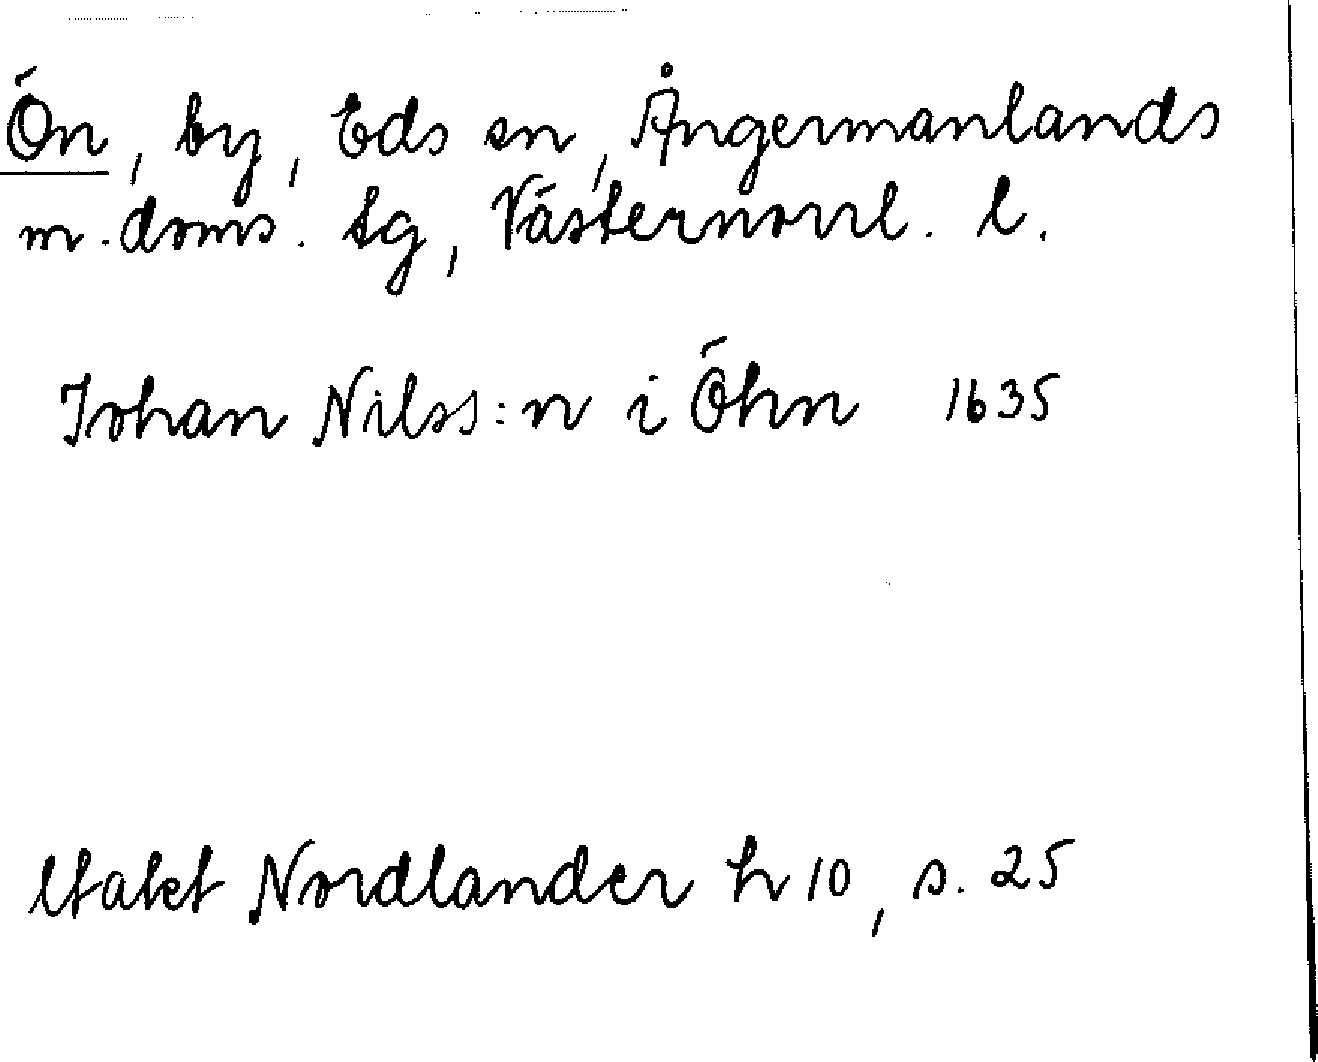 Ön, by, Eds sn, Ångermanlands
m. doms. tg, Västernorrl. l.
Johan Nilss:n i Öhn 1635
Utdt Nordlander h 10, s. 25